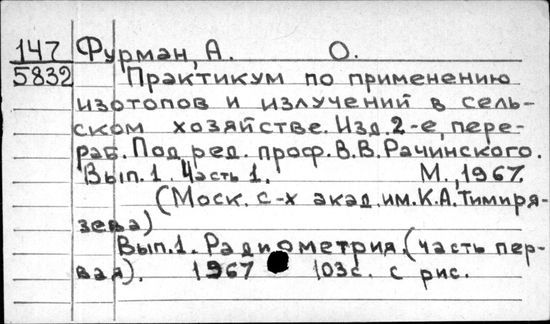 147 Фурман, А. О.
5832 Практикум по применению
изотопов и излучений в сель-
ском хозяйстве. Изд. 2-е, пере-
раб. Под ред. проф. В.В. Рачинского.
Вып. 1. Часть 1. М., 1967.
(Моск. с-х акад. им. К.А. Тимиря-
зева)
Вып. 1. Радиометрия. (часть пер-
вая). 1967 103с. с рис.